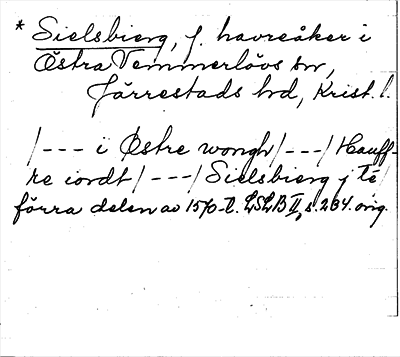 * Sielsbierg, f. havreåker i
Östra Vemmerlövs sn,
Järrestads hd, Krist. l.
/--- i Østre wongh /---/ Hauff-
re iordt /---/ Sielsbierg j té/
förra delen av 1570-t. LSLB II, s. 284. orig.